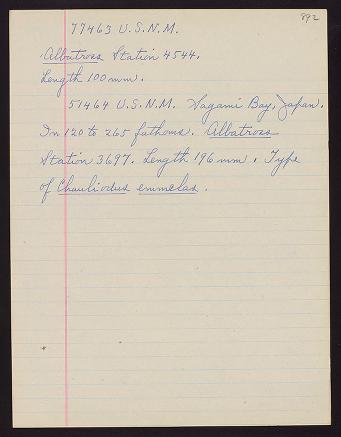 892
77463 U.S.N.M.
Albatross Station 4544.
Length 100 mm.
51464 U.S.N.M. Sagami Bay, Japan.
In 120 to 265 fathoms. Albatross
Station 3697. Length 196 mm. Type
of Chauliodus emmelas.